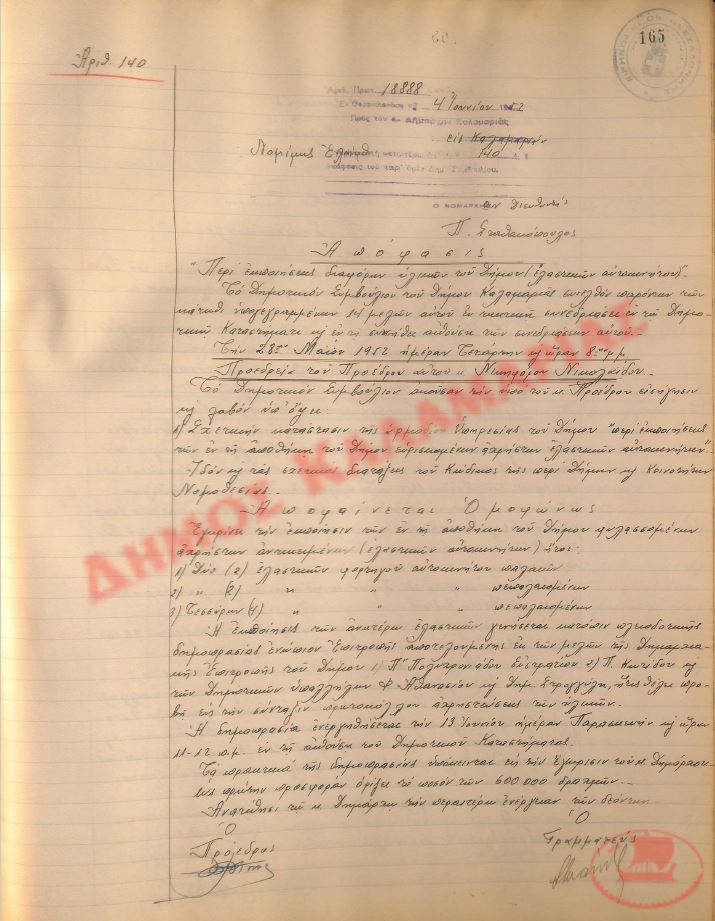 165
Ἀριθ. 140
Ἀριθ. Πρωτ. 18888
Ἐν Θεσσαλονίκῃ τῇ 4 Ἰουνίου 1952
Πρὸς τὸν κ. Δήμαρχον Καλαμαριᾶς
εἰς Καλαμαριάν
Νομίμως 140
Ο ΝΟΜΑΡΧΗΣ
Διευθυντὴς
Π. Σταθακόπουλος
Ἀπόφασις
"Περὶ ἐκποιήσεως διαφόρων ὑλικῶν τοῦ Δήμου (ἐλαστικῶν αὐτοκινήτου)".
Τὸ Δημοτικὸν Συμβούλιον τοῦ Δήμου Καλαμαριᾶς συνελθὸν παρόντων τῶν
κάτωθι ὑπογεγραμμένων 14 μελῶν αὐτοῦ ἐν τακτικῇ συνεδριάσει ἐν τῷ Δημο-
τικῷ Καταστήματι κ ἐν τῇ συνήθει αἰθούσῃ τῶν συνεδριάσεων αὐτοῦ.
Τὴν 28ην Μαΐου 1952 ἡμέραν Τετάρτην κ ὥραν 8ην μ.μ.
Προεδρείᾳ τοῦ Προέδρου αὐτοῦ κ. Νικηφόρου Νικολαΐδου.
Τὸ Δημοτικὸν Συμβούλιον ἀκοῦσαν τὴν ὑπὸ τοῦ κ. Προέδρου εἰσήγησιν
κ λαβὸν ὑπ' ὄψει:
1) Σχετικὴν κατάστασιν τῆς ἁρμοδίου Ὑπηρεσίας τοῦ Δήμου "περὶ ἐκποιήσεως
τῶν ἐν τῇ ἀποθήκῃ τοῦ Δήμου εὑρισκομένων ἀχρήστων ἐλαστικῶν αὐτοκινήτων".
Ἰδὸν κ τὰς σχετικὰς διατάξεις τοῦ Κώδικος τῆς περὶ Δήμων κ Κοινοτήτων
Νομοθεσίας.
Ἀποφαίνεται Ὁμοφώνως
Ἐγκρίνει τὴν ἐκποίησιν τῶν ἐν τῇ ἀποθήκῃ τοῦ Δήμου φυλασσομένων
ἀχρήστων ἀντικειμένων (ἐλαστικῶν αὐτοκινήτων) ἤτοι:
1) Δύο (2) ἐλαστικῶν φορτηγοῦ αὐτοκινήτου παλαιῶν
2) " (2) " " πεπαλαιωμένων
3) Τεσσάρων (4) " " " πεπαλαιωμένων
Ἡ ἐκποίησις τῶν ἀνωτέρω ἐλαστικῶν γενήσεται κατόπιν πλειοδοτικῆς
δημοπρασίας ἐνώπιον Ἐπιτροπῆς ἀποτελουμένης ἐκ τῶν μελῶν τῆς Δημαρχια-
κῆς Ἐπιτροπῆς τοῦ Δήμου 1) Πολυχρονιάδου Εὐστρατίου 2) Π. Κωτίδου κ
τῶν Δημοτικῶν ὑπαλλήλων Ἀθανασίου κ Δημ. Στρογγύλη, ἥτις θέλει προ-
βῇ εἰς τὴν σύνταξιν πρωτοκόλλου ἀχρηστεύσεως τῶν ὑλικῶν.
Ἡ δημοπρασία ἐνεργηθήσεται τὴν 13 Ἰουνίου ἡμέραν Παρασκευὴν κ ὥραν
11-12 π.μ. ἐν τῇ αἰθούσῃ τοῦ Δημοτικοῦ Καταστήματος.
Τὰ πρακτικὰ τῆς δημοπρασίας ὑπόκεινται εἰς τὴν ἔγκρισιν τοῦ κ. Δημάρχου
πρώτην προσφορὰν ὁρίζει τὸ ποσὸν τῶν 600.000 δραχμῶν.
Ἀνατίθησι τῷ κ. Δημάρχῳ τὴν περαιτέρω ἐνέργειαν τῶν δεόντων
Ὁ Ὁ
Πρόεδρος Γραμματεὺς
ΔΗΜΟΣ ΚΑΛΑΜΑΡΙΑΣ